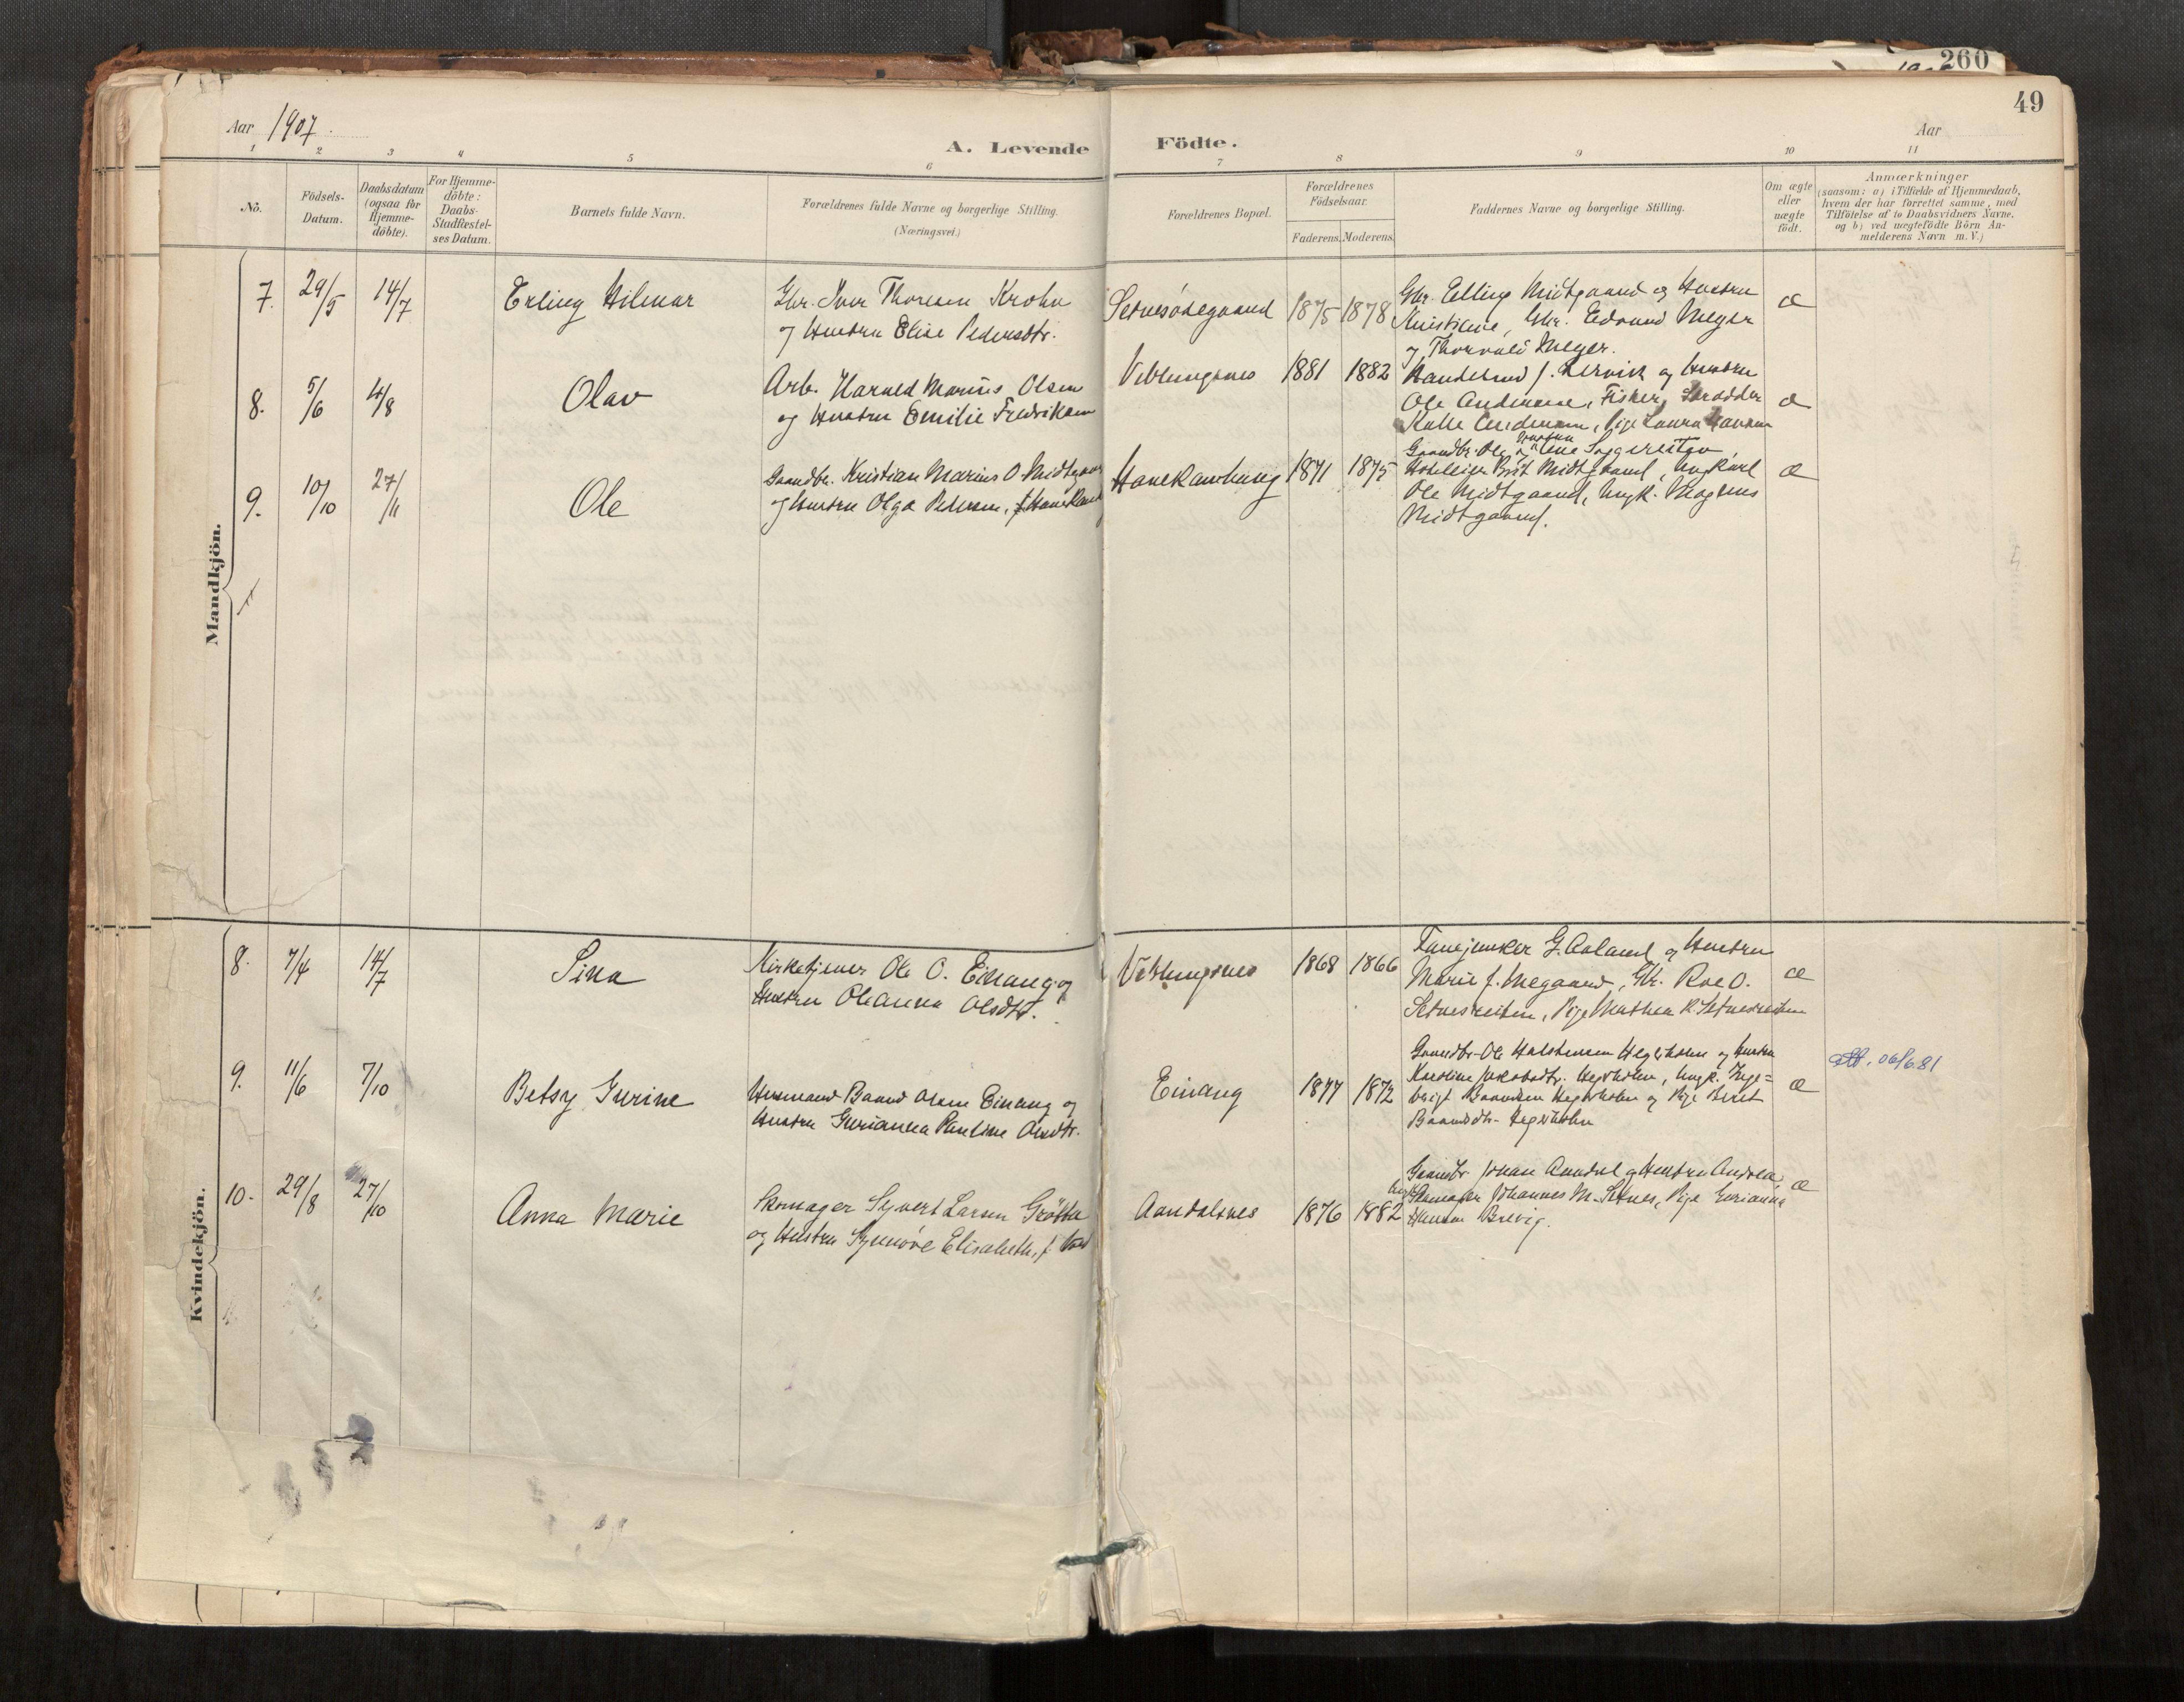 260
49
Aar 1907.
A. Levende Födte.
Aar
1 2 3 4 5 6 7 8 9 10 11
No.
Födsels-
Datum.
Daabsdatum
(ogsaa for
Hjemme-
döbte).
For Hjemme-
döbte:
Daabs-
Stadfæstel-
ses Datum.
Barnets fulde Navn.
Forældrenes fulde Navne og borgerlige Stilling.
(Næringsvei.)
Forældrenes Bopæl.
Forældrenes
Födselsaar.
Faderens. Moderens.
Faddernes Navne og borgerlige Stilling.
Om ægte
eller
uægte
födt.
Anmærkninger
(saasom: a) i Tilfælde af Hjemmedaab,
hvem der har forrettet samme, med
Tilföielse af to Daabsvidners Navne,
og b) ved uægtefödte Börn An-
melderens Navn m. V.)
Mandkjön.
7. 29/5 14/7
Erling Hilmar
Gbr. Iver Thoresen Krohn
og Hustru Elise Pedersdtr.
Setnesødegaard
1875 1878
Gbr. Elling Midtgaard og Hustru
Kristine, Gbr. Edvard Meyer
og Thorvald Meyer.
æ
8. 5/6 4/8
Olav
Arb. Harald Marius Olsen
og Hustru Emilie Fredriksen
Veblungsnes
1881 1882
og Hustru
Ole Andersen, Fisker, Skrædder
Kalle Andersen, Pige Laura
æ
9. 10/10 27/11
Ole
Gaardbr. Kristian Marius O. Midtgaard
og Hustru Olga Pedersen, f.
Hanekamhaug
1871 1875
Gaardbr. Ole og Hustru Lene
Midtgaard, Ungkarl
Ole Midtgaard, Ungk. Magnus
Midtgaard.
æ
Kvindekjön.
8. 7/4 14/7
Sina
Kirketjener Ole O. Einang og
Hustru Oleanna Olsdtr.
Veblungsnes
1868 1866
Fanejunker G. Aaland og Hustru
Marie f. Megaard, Gbr. Roe O.
Setnesreiten, Pige Mathea R. Setnesreiten
æ
9. 11/6 7/10
Betsy Gurine
Husmand Baard Olsen Einang og
Hustru Gurianna Pauline Olsdtr.
Einang
1877 1872
Gaardbr. Ole Halstensen Hegerholm og Hustru
Karoline Jakobsdtr. Hegerholm, Ungk. Inge=
brigt Baardsen Hegerholm og Pige Beret
Baardsdtr. Hegerholm
æ
att. 06/6.81
10. 29/8 27/10
Anna Marie
Skomager Syvert Larsen Grötta
og Hustru Synnøve Elisabeth, f.
Aandalsnes
1876 1882
Gaardbr. Johan Aandal og Hustru Andrea,
Skomager Johannes M. Setnes, Pige Gurianna
Hansen Brevig.
æ